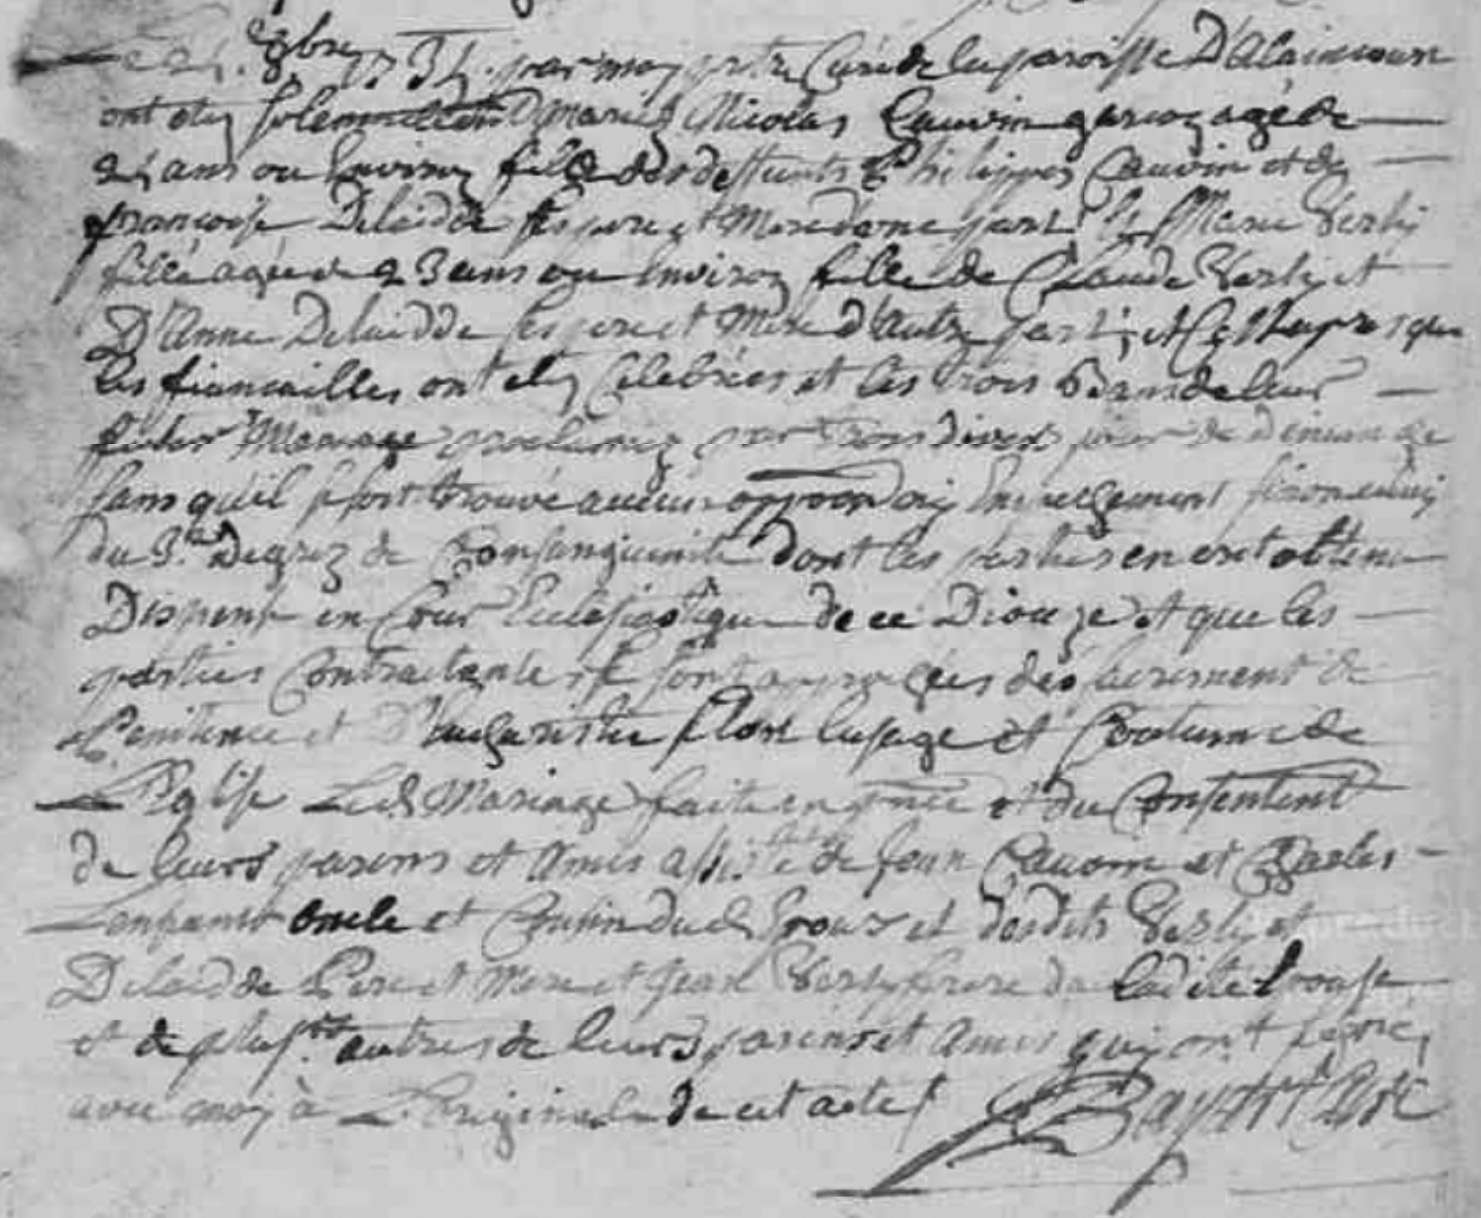 Le 24. 8bre 1734. par moy prtre Curé de la paroisse D'Alaincourt
ont etez solemnellemt Mariez Nicolas Cauvin garçoz agé de
24 ans ou Environ fils des deffunts Philippes Cauvin et de
françoise Delaidde ses pere et Mere d'une part Et Marie Verly
fille agée de 23 ans ou Environ fille de Claude Verly et
D'Anne Delaidde ses pere et Mere d'autre part; et Ce apres que
les fiançailles ont etez Celebrées et les trois Bans de leur
futur Mariage proclamez par trois divers jours de Dimanche
sans qu'il se soit trouvé aucun empeschement sinon celuy
du 3.e Degrez de Consanguinité dont les parties en ont obtenu
Dispense en Cour Ecclesiastique de ce Dioceze et que les
parties Contractantes se sont approchées des sacrement de
Penitence et D'Eucharistie selon l'usage et Coutume de
L'Eglise Led. Mariage fait en pnce et du Consentemt
de leurs parens et Amis assisté de Jean Cauvin et Charles
Lenfant oncle et Cousin dud. Epoux et desdits Verly et
Delaidde Pere et Mere et Jean Verly frere de ladite Epouse
et de plusrs autres de leurs parens et Amis qui ont signé
avec moy à L'originale de cet acte